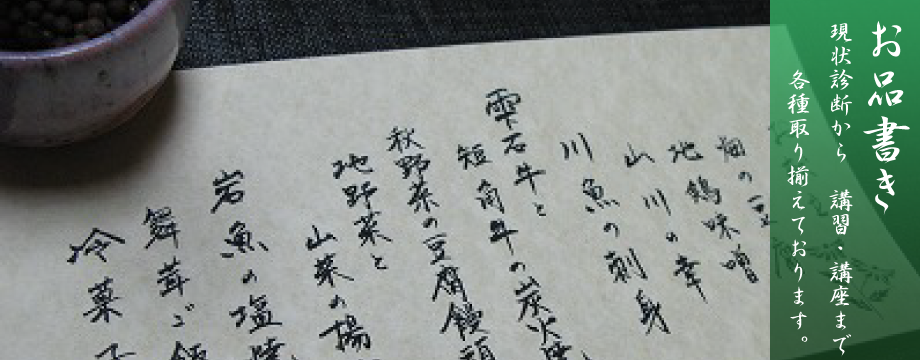 お品書き
現状診断から　講習・講座まで
各種取り揃えております。
地鶏味噌
山川の幸
川魚の刺身
雫石牛と
短角牛の炭火焼
秋野菜の豆腐饅頭
地野菜と
山菜の揚
岩魚の塩焼
舞茸ご飯
冷菓子